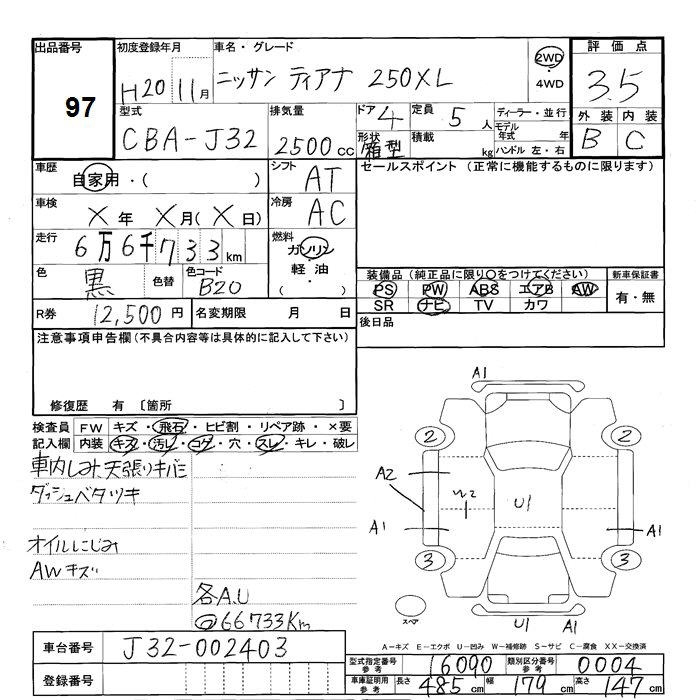 出品番号 初度登録年月 車名・グレード 評価点
97 H20 11月 ニッサン ティアナ 250XL 2WD・4WD 3.5
型式 排気量 ドア 4 定員 5人 ディーラー・並行 外装 内装
CBA-J32 2500cc 形状 箱型 積載 kg モデル年式 年 ハンドル 左・右 B C
車歴 自家用・( ) シフト AT セールスポイント (正常に機能するものに限ります)
車検 X年 X月(X日) 冷房 AC
走行 6万6千733km 燃料 ガソリン
軽油・( ・ )
色 黒 色替 色コード B20 装備品(純正品に限り○をつけてください) 新車保証書
PS PW ABS エアB AW 有・無
SR ナビ TV カワ
R券 12,500円 名変期限 月 日 後日品
注意事項申告欄(不具合内容等は具体的に記入して下さい)
修復歴 有 〔箇所 〕
検査員 FW キズ・飛石・ヒビ割・リペア跡・×要
記入欄 内装 キズ・汚レ・コゲ・穴・スレ・キレ・破レ
車内しみ、天張りキバミ
ダッシュベタツキ
オイルにじみ
AWキズ
各A.U
@66733Km
A1
2 2
A2
U1
A1 A1
3 3
スペア
U1 A1
車台番号 J32-002403
登録番号
A-キズ E-エクボ U-凹み W-補修跡 S-サビ C-腐食 XX-交換済
型式指定番号 参考 16090 類別区分番号 参考 0004
車庫証明用 参考 長さ 485cm 幅 179cm 高さ 147cm